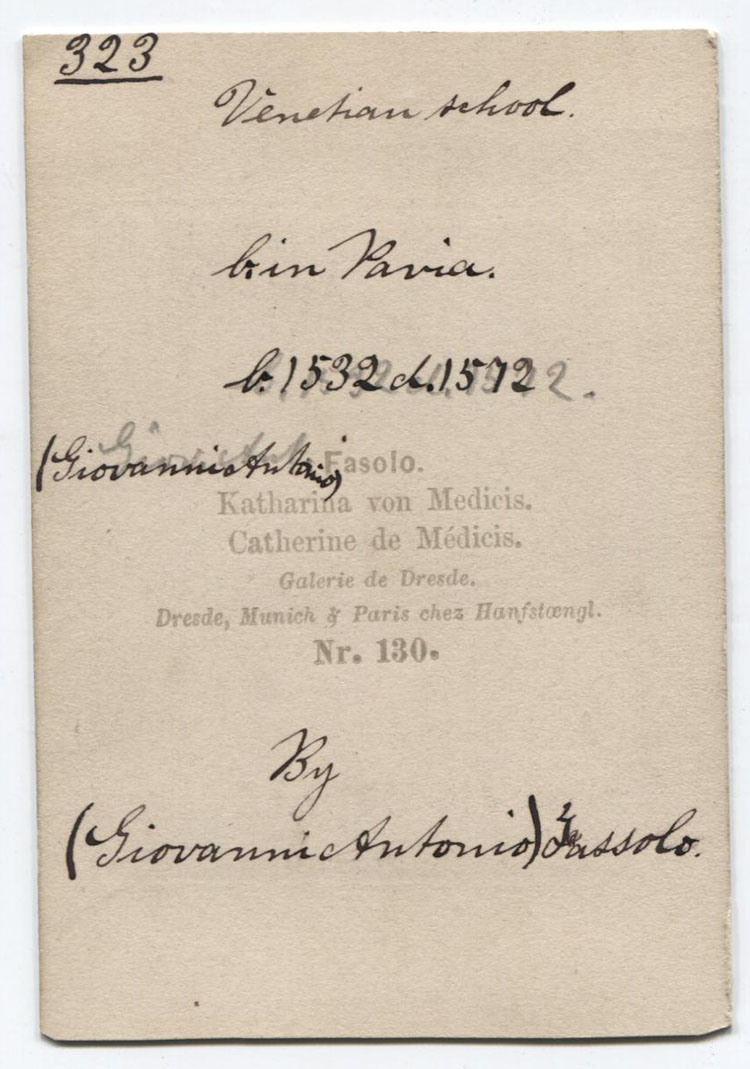 323
Venetian school.
b. in Pavia.
b. 1532 d. 1572
(Giovanni Antonio) Fasolo.
Katharina von Medicis.
Catherine de Médicis.
Galerie de Dresde.
Dresde, Munich & Paris chez Hanfstœngl.
Nr. 130.
By
(Giovanni Antonio) Fassolo.